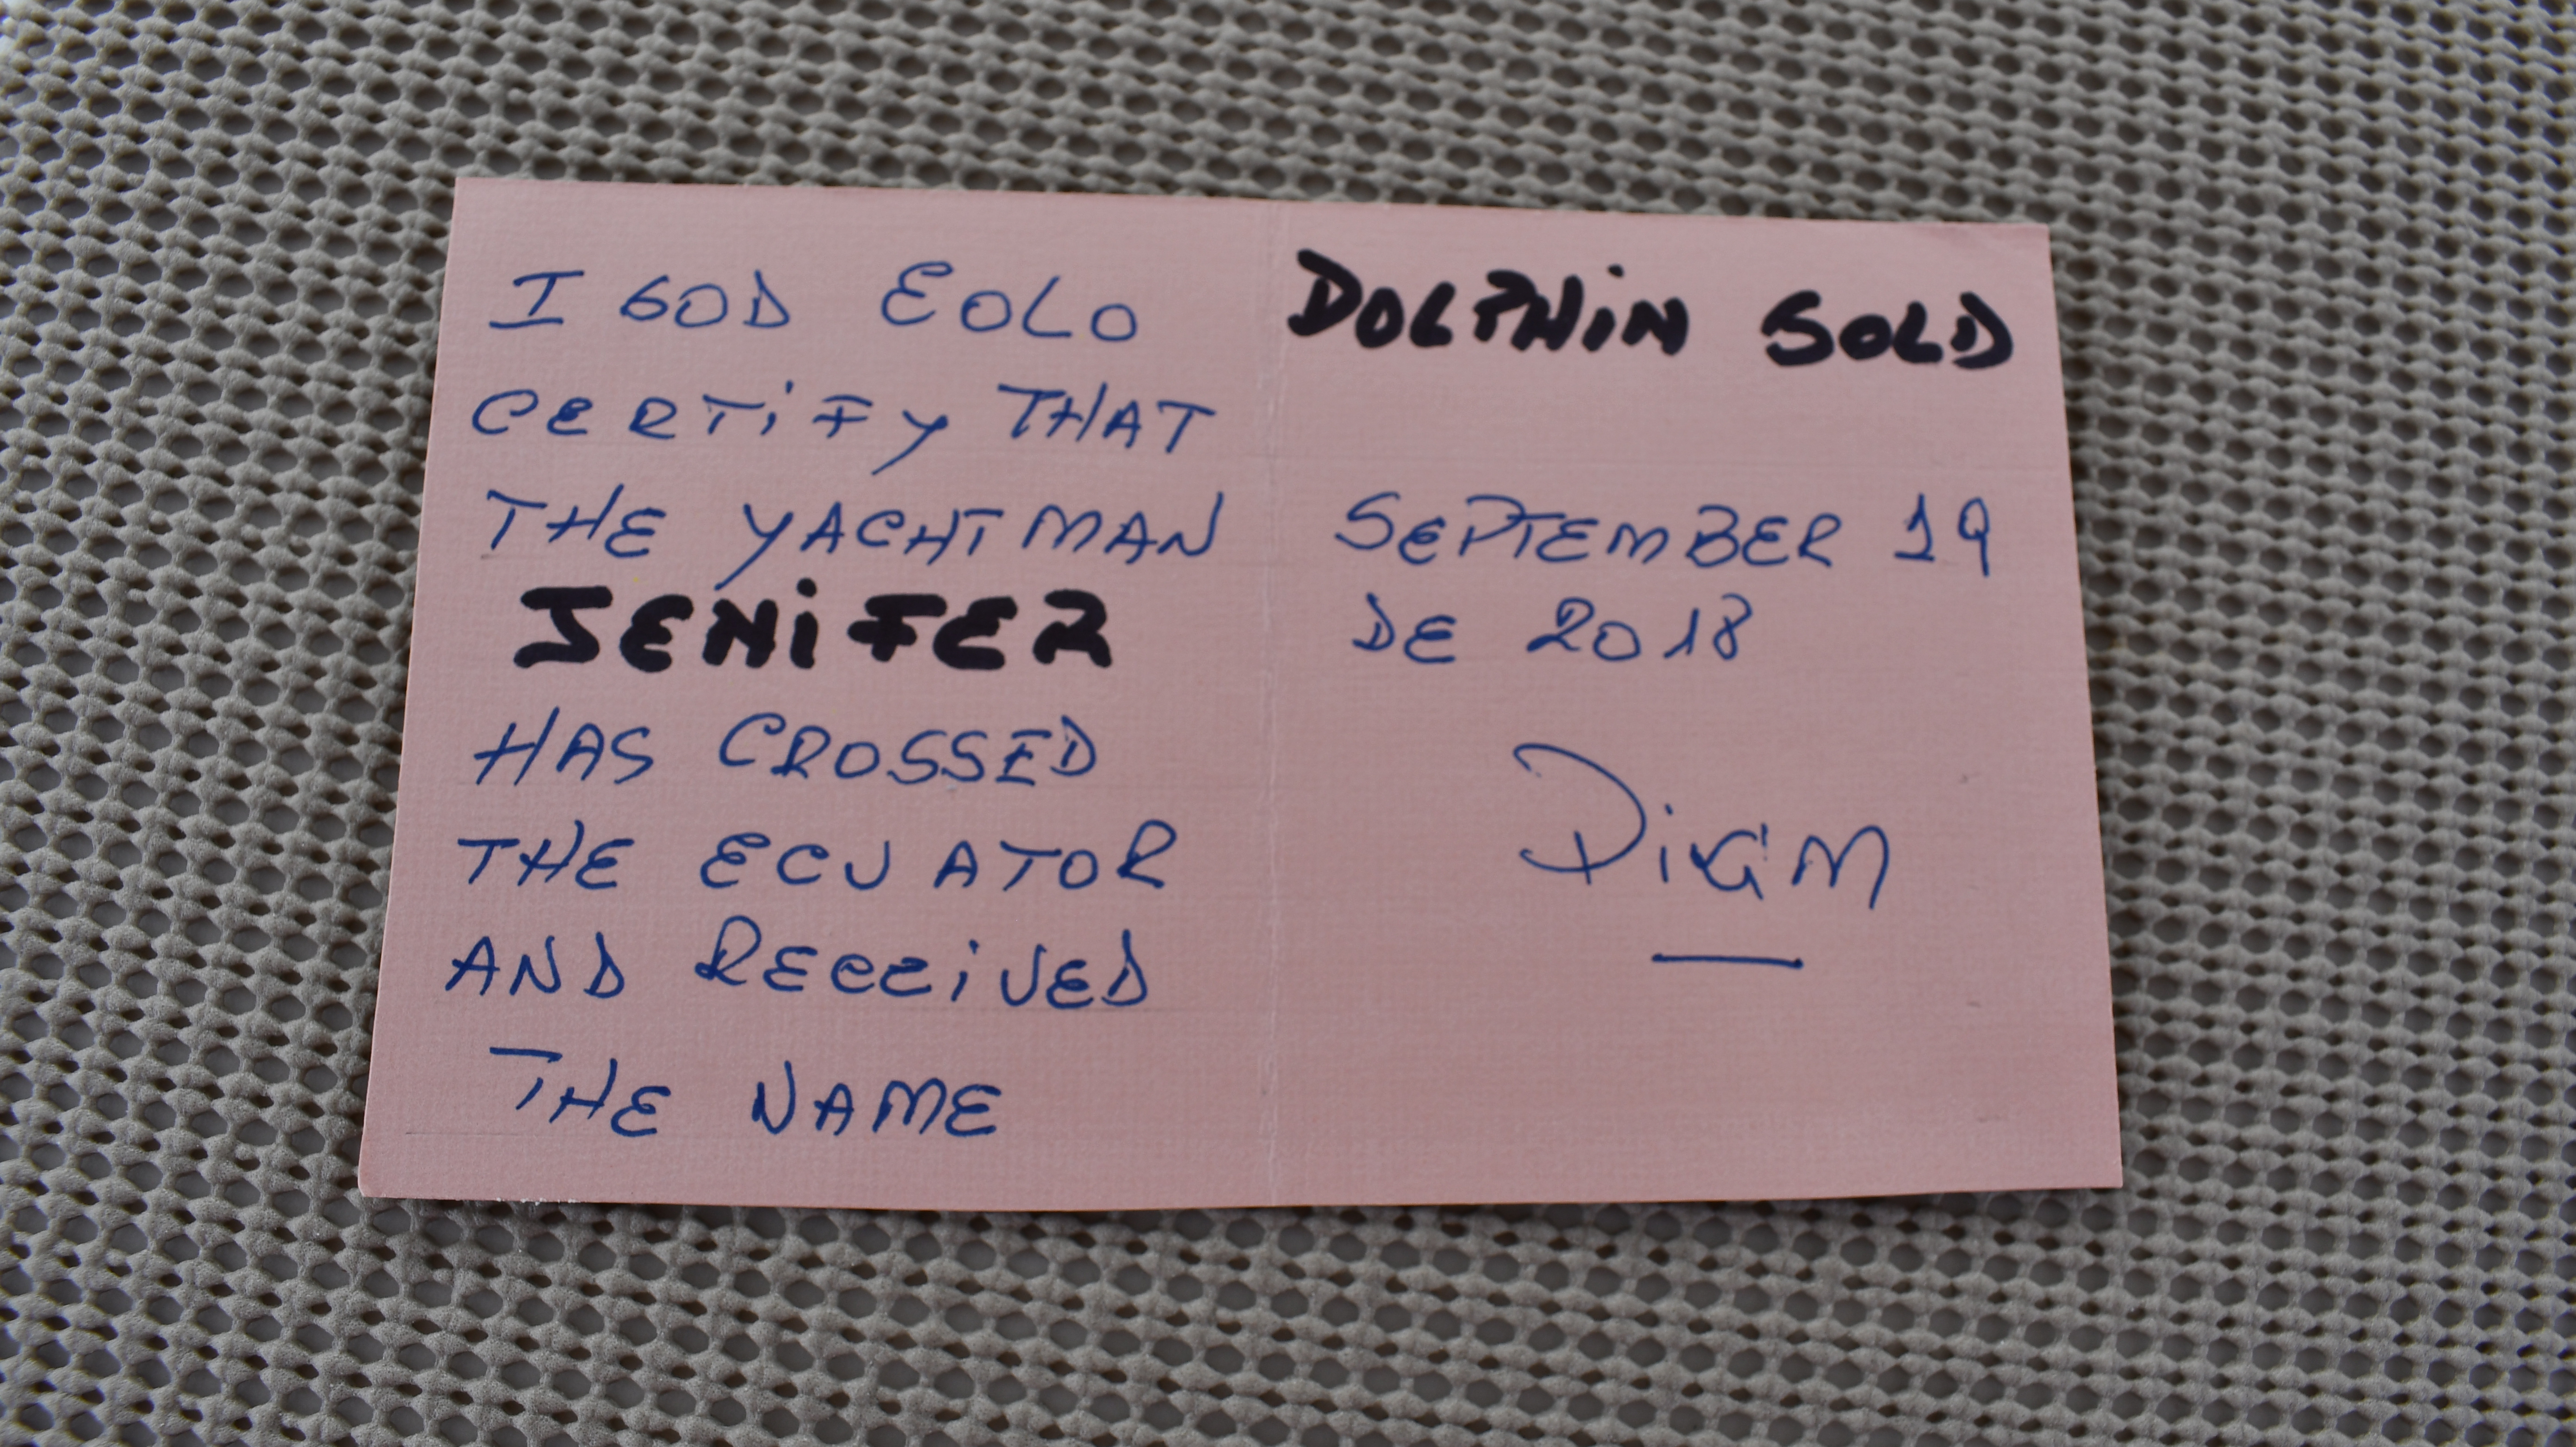 I GOD EOLO
CERTiFY THAT
THE YACHTMAN
JENiFER
HAS CROSSED
THE ECUATOR
AND RECEiVED
THE NAME
DOLPHiN GOLD
SEPTEMBER 19
DE 2018